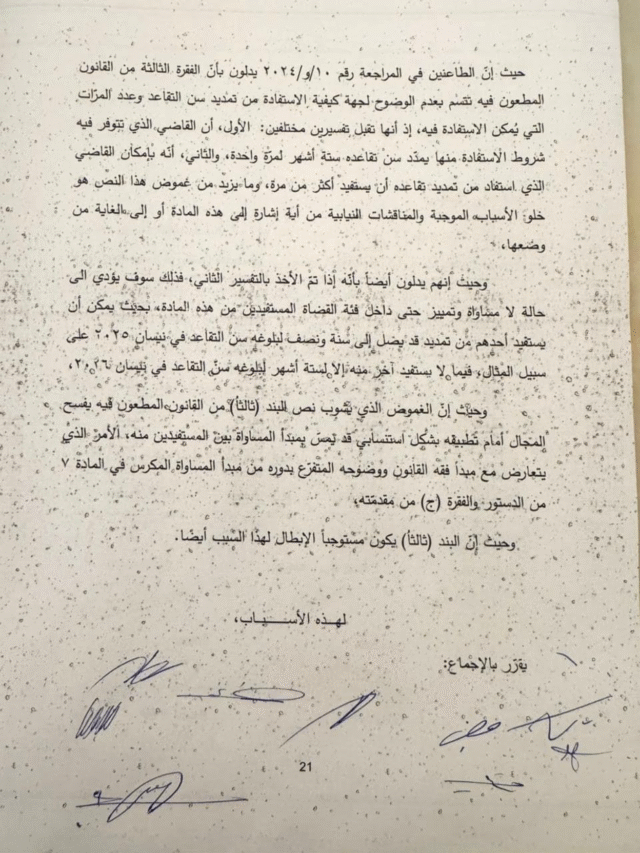 حيث إنّ الطاعنين في المراجعة رقم ١٠/و/٢٠٢٤ يدلون بأنّ الفقرة الثالثة من القانون
المطعون فيه تتسم بعدم الوضوح لجهة كيفية الاستفادة من تمديد سن التقاعد وعدد المرّات
التي يُمكن الاستفادة فيه، إذ أنها تقبل تفسيرين مختلفين: الأول، أن القاضي الذي تتوفر فيه
شروط الاستفادة منها يمدّد سن تقاعده ستة أشهر لمرّة واحدة، والثاني، أنّه بإمكان القاضي
الذي استفاد من تمديد تقاعده أن يستفيد أكثر من مرة، وما يزيد من غموض هذا النص هو
خلو الأسباب الموجبة والمناقشات النيابية من أية إشارة إلى هذه المادة أو إلى الغاية من
وضعها،
وحيث إنهم يدلون أيضاً بأنّه إذا تمّ الأخذ بالتفسير الثاني، فذلك سوف يؤدي الى
حالة لا مساواة وتمييز حتى داخل فئة القضاة المستفيدين من هذه المادة، بحيث يمكن أن
يستفيد أحدهم من تمديد قد يصل إلى سنة ونصف لبلوغه سن التقاعد في نيسان ٢٠٢٥ على
سبيل المثال، فيما لا يستفيد آخر منه إلا لستة أشهر لبلوغه سنّ التقاعد في نيسان ٢٠٢٦،
وحيث إنّ الغموض الذي يشوب نص البند (ثالثاً) من القانون المطعون فيه يفسح
المجال أمام تطبيقه بشكل استنسابي قد يمسّ بمبدأ المساواة بين المستفيدين منه، الأمر الذي
يتعارض مع مبدأ فقه القانون ووضوحه المتفرّع بدوره من مبدأ المساواة المكرس في المادة ٧
من الدستور والفقرة (ج) من مقدمته،
وحيث إنّ البند (ثالثاً) يكون مستوجباً الإبطال لهذا السبب أيضًا.
لهـذه الأسـبـاب،
يقرّر بالإجماع:
21